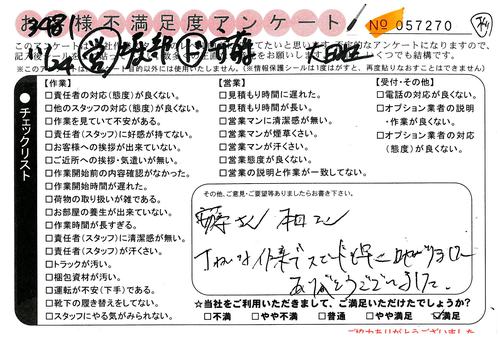 お客様不満足度アンケート
No 057270
チェックリスト
【作業】
□責任者の対応(態度)が良くない。
□他のスタッフの対応(態度)が良くない。
□作業を見ていて不安がある。
□責任者(スタッフ)に好感が持てない。
□お客様への挨拶が出来ていない。
□ご近所への挨拶・気遣いが無い。
□作業開始前の内容確認がなかった。
□作業開始時間が遅れた。
□荷物の取り扱いが雑である。
□お部屋の養生が出来ていない。
□作業時間が長すぎる。
□責任者(スタッフ)に清潔感が無い。
□責任者(スタッフ)が汗くさい。
□トラックが汚い。
□梱包資材が汚い。
□運転が不安(下手)である。
□靴下の履き替えをしてない。
□スタッフにやる気がみられない。
【営業】
□見積もり時間に遅れた。
□見積もり時間が長い。
□営業マンに清潔感が無い。
□営業マンが煙草くさい。
□営業マンが汗くさい。
□営業態度が良くない。
□営業の説明と作業が一致してない。
【受付・その他】
□電話の対応が良くない。
□オプション業者の説明
・作業が良くない。
□オプション業者の対応
(態度)が良くない。
その他、ご意見・ご要望等ありましたらお書き下さい。
ていねいな作業でスピードも早く助かりました
ありがとうございました。
☆当社をご利用いただきまして、ご満足いただけたでしょうか?
□不満 □やや不満 □普通 □やや満足 ☑満足
ご協力ありがとうございました